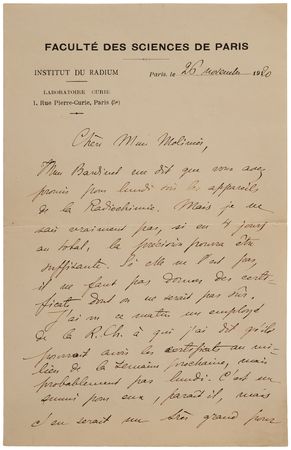 FACULTÉ DES SCIENCES DE PARIS
INSTITUT DU RADIUM
LABORATOIRE CURIE
1, Rue Pierre-Curie, Paris (5e)
Paris, le 26 novembre 1920
Chère Mme Molinier,
Mme me dit que vous avez
promis pour lundi soir les appareils
de la Radiochimie. Mais je ne
sais vraiment pas, si en 4 jours
au total, la précision pourra être
suffisante. Si elle ne l'est pas,
il ne faut pas donner des certi-
ficats dont on ne serait pas sûr.
J'ai vu ce matin un employé
de la R.Ch. à qui j'ai dit qu'ils
pourrait avoir les certificats au mi-
lieu de la semaine prochaine, mais
probablement pas lundi. C'est un
ennui pour eux, paraît il, mais
c'en serait un très grand pour